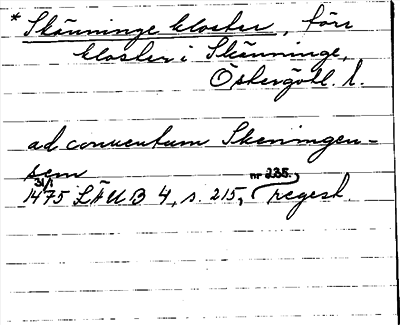 * Skänninge kloster, förr
kloster i Skänninge,
Östergötl. l.
ad conventum Skeningen-
sem
31/1 nr 235.
1475 LÄUB 4, s. 215, regest.